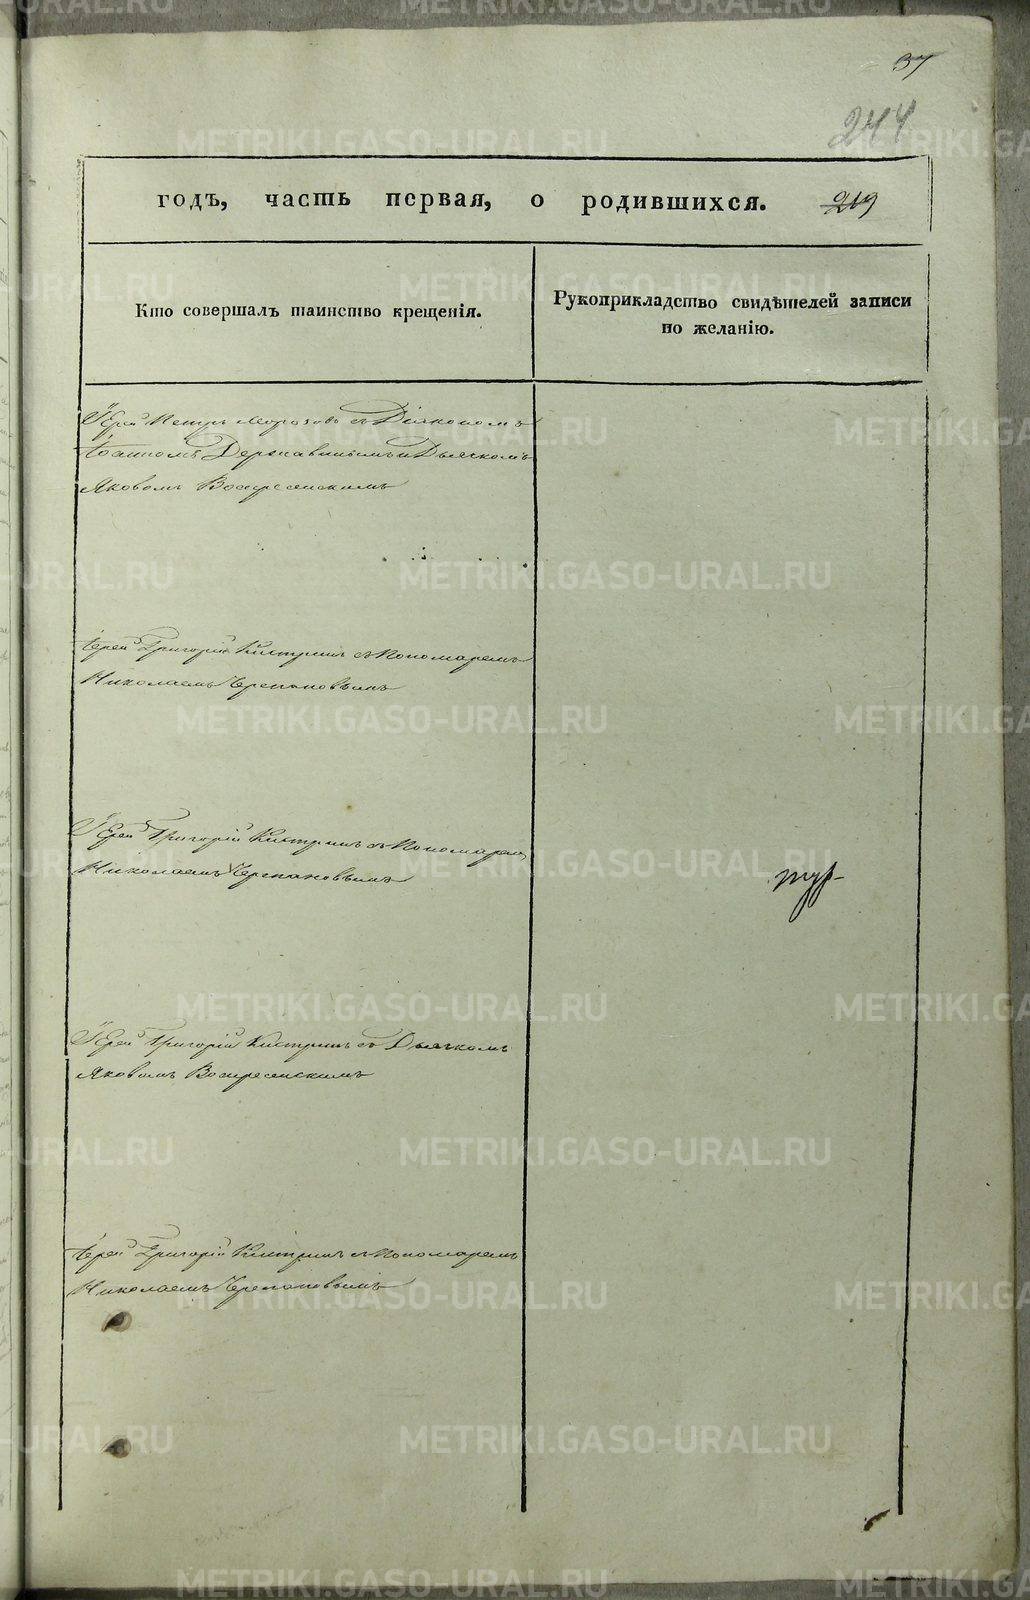 37
244
годъ, часть первая, о родившихся. 219
Кто совершалъ таинство крещенія.
Рукоприкладство свидѣтелей записи
по желанію.
Іерей Петръ Морозовъ съ Діакономъ
Іоанномъ Державинымъ и Дьячкомъ
Яковомъ Воскресенскимъ
Іерей Григорій съ Пономаремъ
Николаемъ Черепановымъ
Іерей Григорій съ Пономаремъ
Николаемъ Черепановымъ
Іерей Григорій съ Дьячкомъ
Яковомъ Воскресенскимъ
Іерей Григорій съ Пономаремъ
Николаемъ Черепановымъ
METRIKI.GASO-URAL.RU